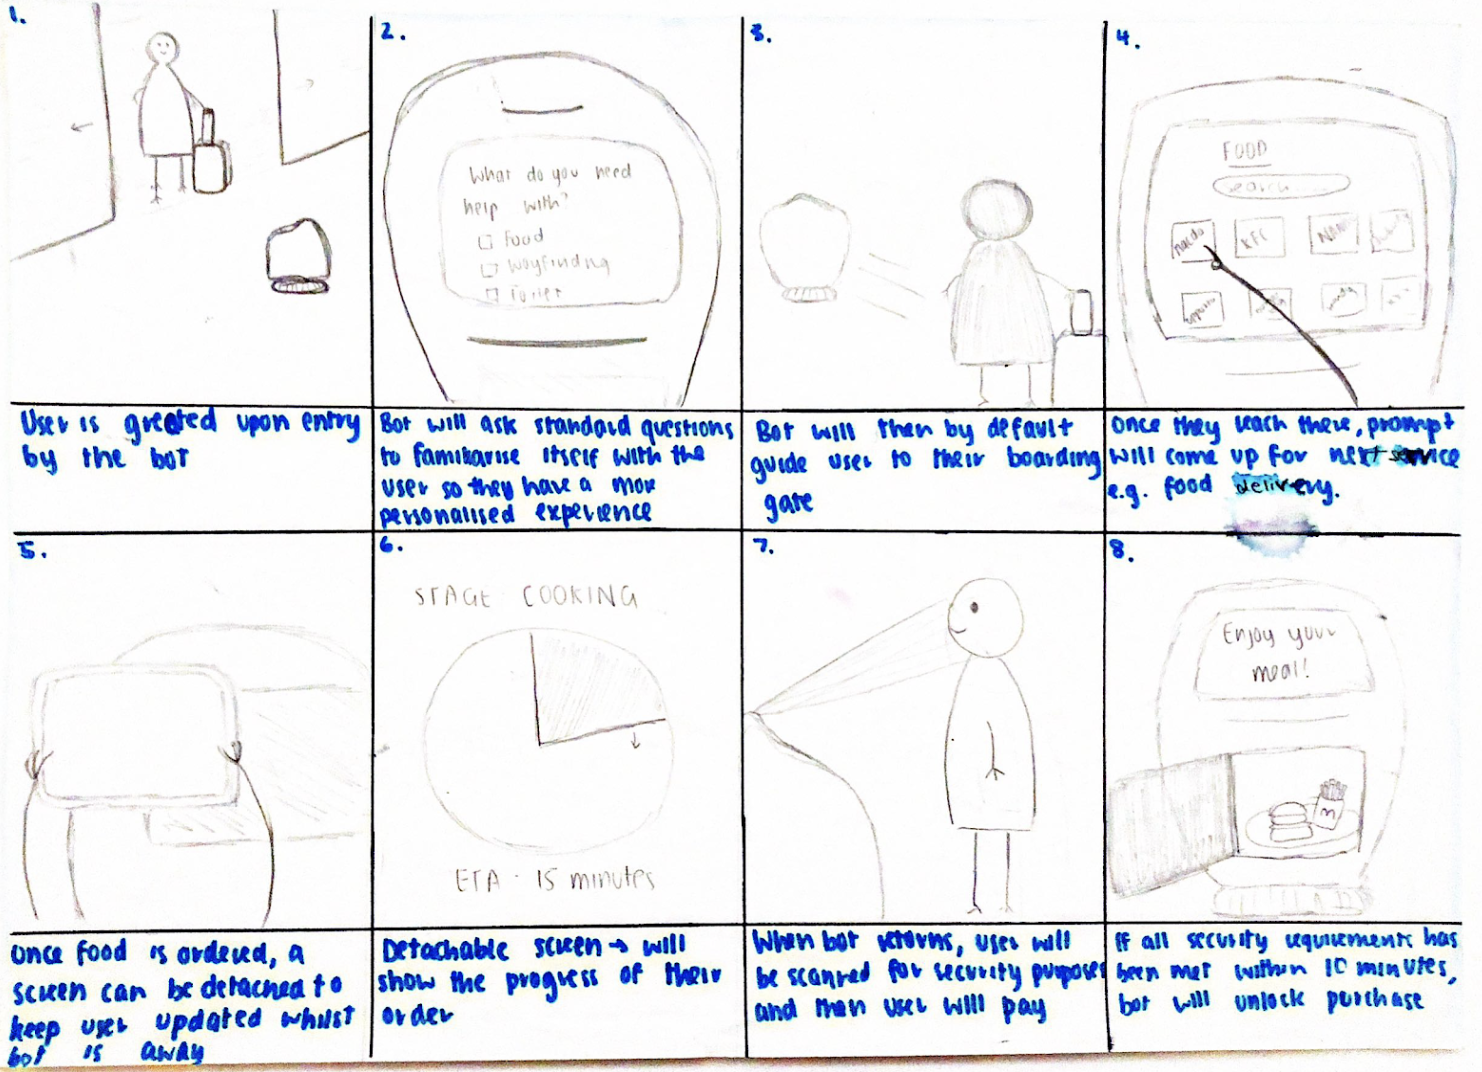 1.
User is greeted upon entry
by the bot
2.
What do you need
help with?
Food
Wayfinding
Toilet
Bot will ask standard questions
to familiarise itself with the
user so they have a more
personalised experience
3.
Bot will then by default
guide user to their boarding
gate
4.
FOOD
search
nando
KFC
Once they reach there, prompt
will come up for next service
e.g. food delivery.
5.
Once food is ordered, a
screen can be detached to
keep user updated whilst
bot is away
6.
STAGE COOKING
ETA - 15 minutes
Detachable screen → will
show the progress of their
order
7.
When bot returns, user will
be scanned for security purposes
and then user will pay
8.
Enjoy your
meal!
M
If all security requirements has
been met within 10 minutes,
bot will unlock purchase